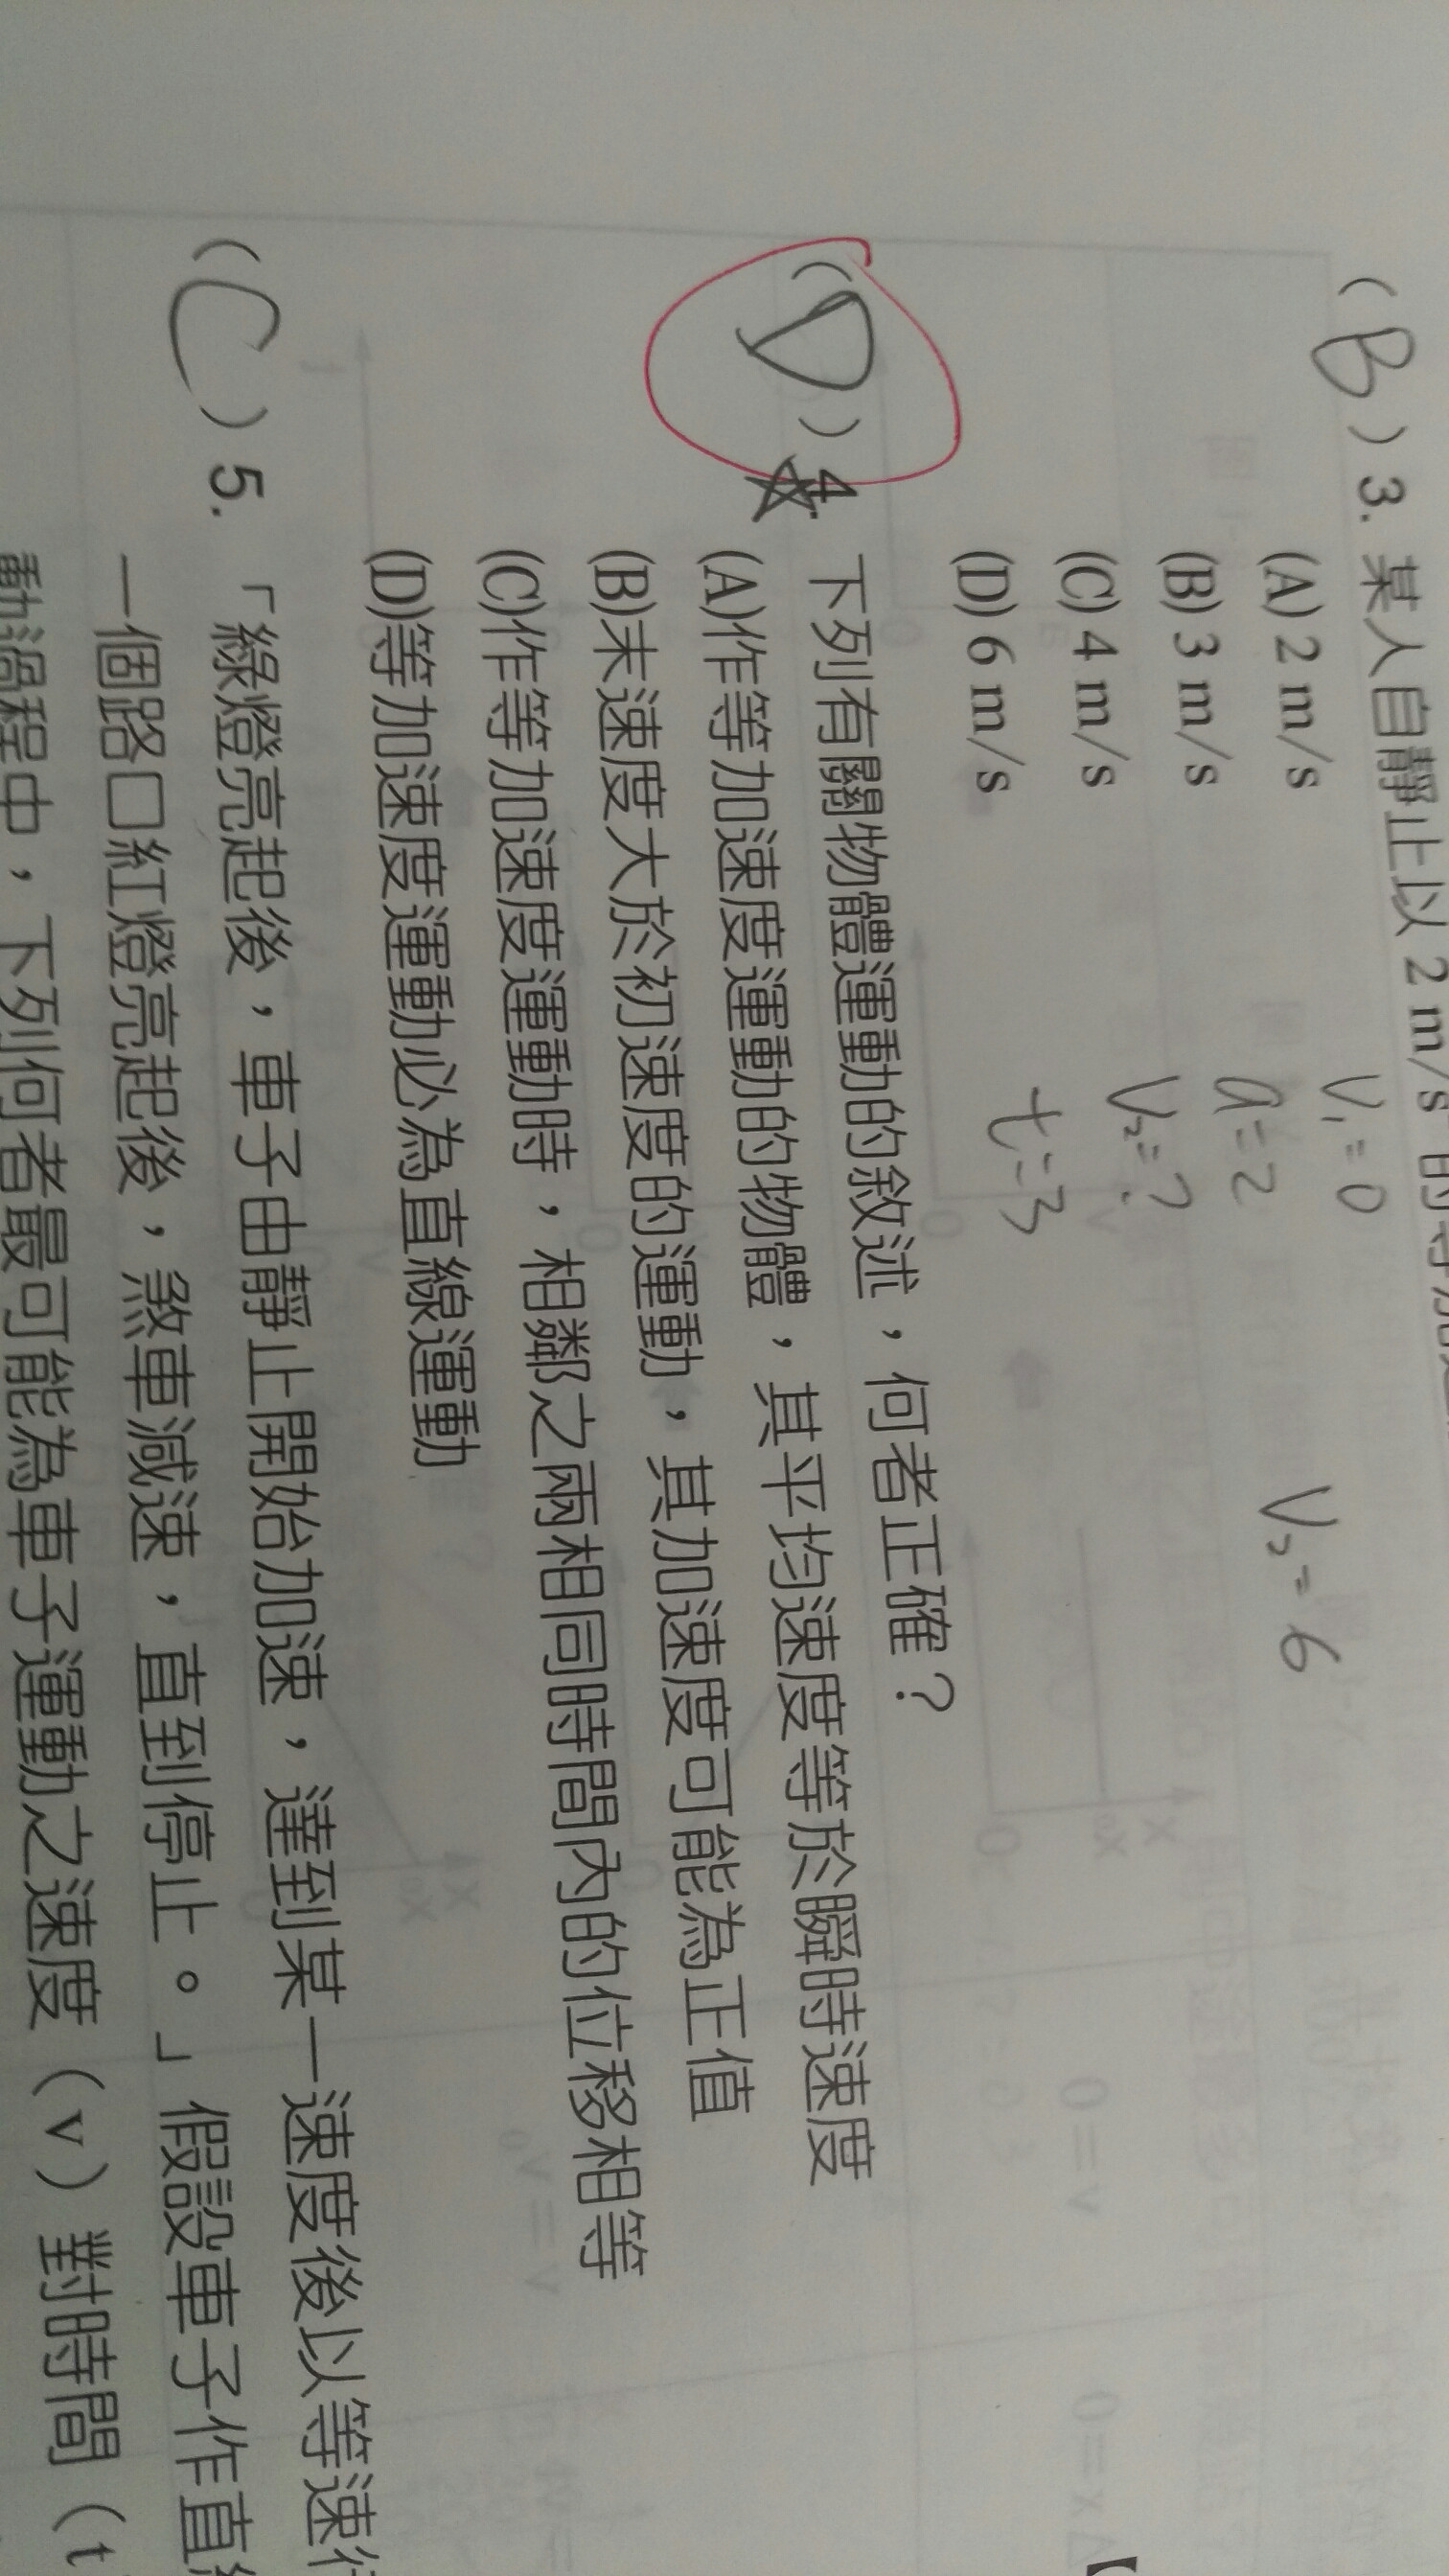 (B) 3. 某人自靜止以 2 m/s 的等加
(A) 2 m/s
(B) 3 m/s
(C) 4 m/s
(D) 6 m/s
V₁=0
a=2
V₂=?
t=3
V₂=6
(D) ☆4. 下列有關物體運動的敘述,何者正確?
(A)作等加速度運動的物體,其平均速度等於瞬時速度
(B)末速度大於初速度的運動,其加速度可能為正值
(C)作等加速度運動時,相鄰之兩相同時間內的位移相等
(D)等加速度運動必為直線運動
(C) 5. 「綠燈亮起後,車子由靜止開始加速,達到某一速度後以等速行
一個路口紅燈亮起後,煞車減速,直到停止。」假設車子作直
動過程中,下列何者最可能為車子運動之速度(v)對時間(t